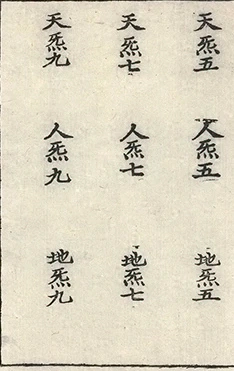 天炁五 人炁五 地炁五
天炁七 人炁七 地炁七
天炁九 人炁九 地炁九